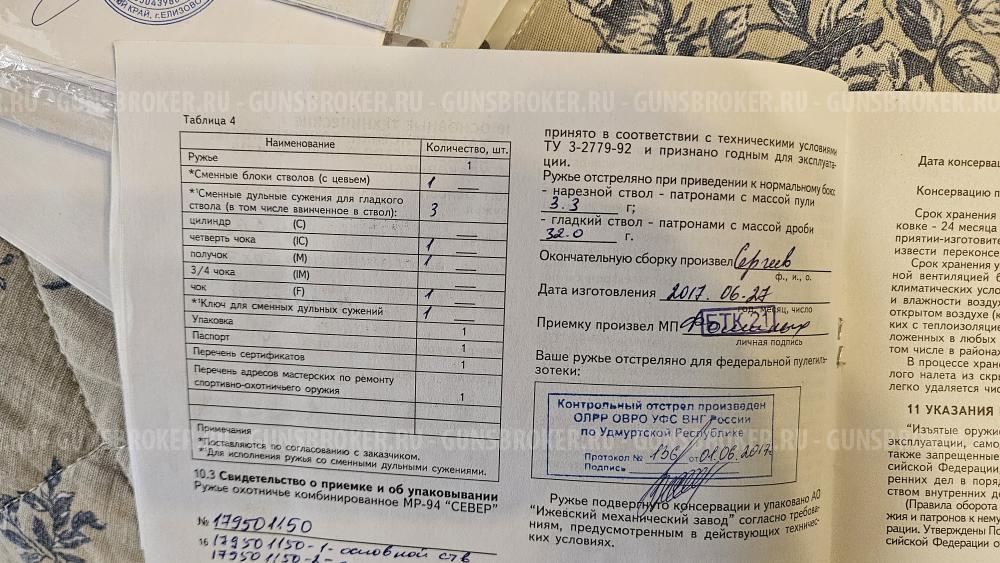 5043980
ИЙ КРАЙ, г.ЕЛИЗОВО
GUNSBROKER.RU - GUNSBROKER.RU - GUNSBROKER.RU - GUNSBROKER.RU
Таблица 4
Наименование Количество, шт.
Ружье 1
*Сменные блоки стволов (с цевьем) 1
*¹Сменные дульные сужения для гладкого
ствола (в том числе ввинченное в ствол): 3
цилиндр (C)
четверть чока (IC) 1
получок (M) 1
3/4 чока (IM)
чок (F) 1
*¹Ключ для сменных дульных сужений 1
Упаковка 1
Паспорт 1
Перечень сертификатов 1
Перечень адресов мастерских по ремонту
спортивно-охотничьего оружия 1
Примечания
*Поставляются по согласованию с заказчиком.
*¹Для исполнения ружья со сменными дульными сужениями.
10.3 Свидетельство о приемке и об упаковывании
Ружье охотничье комбинированное МР-94 “СЕВЕР”
№ 179501150
16 179501150-1- основной ств
179501150-2-
принято в соответствии с техническими условиями
ТУ 3-2779-92 и признано годным для эксплуата-
ции.
Ружье отстреляно при приведении к нормальному бою:
- нарезной ствол - патронами с массой пули
3.3 г;
- гладкий ствол - патронами с массой дроби
32.0 г.
Окончательную сборку произвел Сергеев
ф., и., о.
Дата изготовления 2017. 06.27
год, месяц, число
Приемку произвел МП БТК 21
личная подпись
Ваше ружье отстреляно для федеральной пулегиль-
зотеки:
Контрольный отстрел произведен
ОЛРР ОВРО УФС ВНГ России
по Удмуртской Республике
Протокол № 136 от 01.06.2017г
Подпись
Ружье подвергнуто консервации и упаковано АО
“Ижевский механический завод” согласно требова-
ниям, предусмотренным в действующих техничес-
ких условиях.
Дата консерва
Консервацию п
Срок хранения
ковке - 24 месяца
приятии-изготовите
извести переконсе
Срок хранения у
ной вентиляцией б
климатических усло
и влажности воздух
открытом воздухе (к
ких с теплоизоляцие
ложенных в любых
том числе в районах
В процессе хране
лого налета из скры
легко удаляется чис
11 УКАЗАНИЯ
“Изъятые оружие
эксплуатации, само
также запрещенные
сийской Федерации
ренних дел в поряд
ством внутренних де
(Правила оборота
жия и патронов к нему
рации. Утверждены По
сийской Федерации о
GUNSBROKER.RU - GUNSBROKER.RU - GUNSBROKER.RU - GUNSBROKER.RU